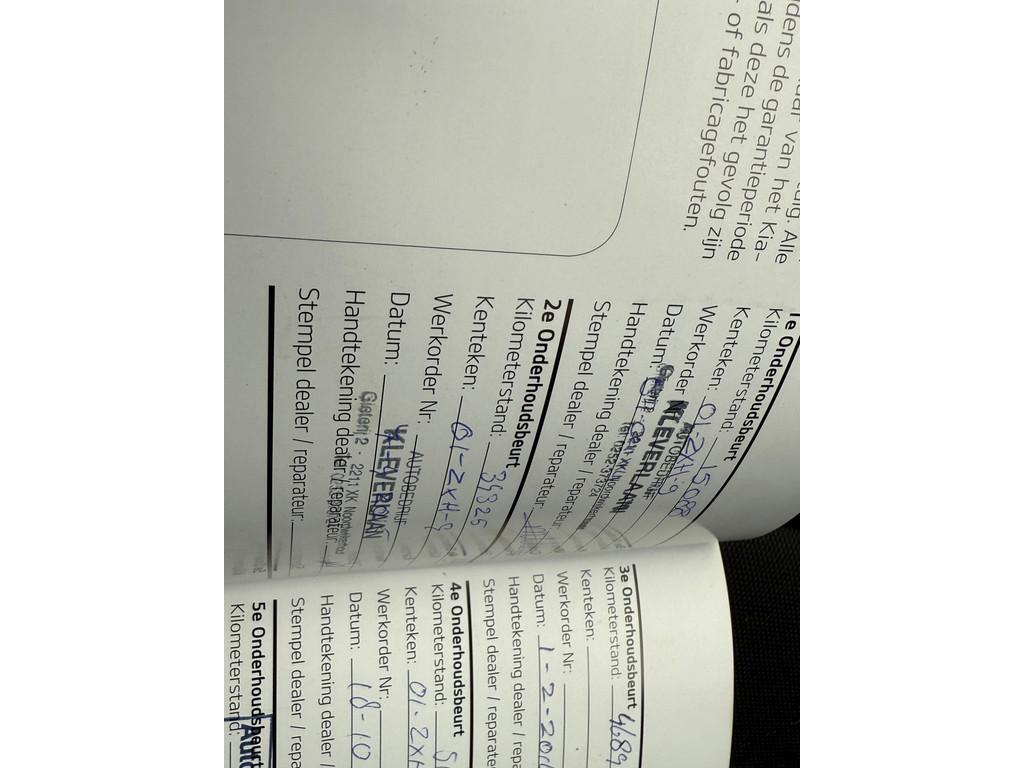 van het Kia-
dens de garantieperiode
als deze het gevolg zijn
of fabricagefouten.
Alle
1e Onderhoudsbeurt
Kilometerstand: 15088
Kenteken: 01-ZXH-9
Werkorder
Datum:
Handtekening dealer / reparateur
Stempel dealer / reparateur:
AUTOBEDRIJF
KLEVERLAAN
2e Onderhoudsbeurt
Kilometerstand: 34326
Kenteken: 01-ZXH-9
Werkorder Nr:
Datum:
Handtekening dealer / reparateur:
Stempel dealer / reparateur:
AUTOBEDRIJF
KLEVERLAAN
Gieterij 2 - 2211 XK Noordwijkerhout
3e Onderhoudsbeurt
Kilometerstand: 4689
Kenteken:
Werkorder Nr:
Datum: 1-2-20
Handtekening dealer / rep
Stempel dealer / reparate
4e Onderhoudsbeurt
Kilometerstand:
Kenteken: 01-ZXH
Werkorder Nr:
Datum: 18-10
Handtekening dealer /
Stempel dealer / repa
5e Onderhoudsbeurt
Kilometerstand:
Auto